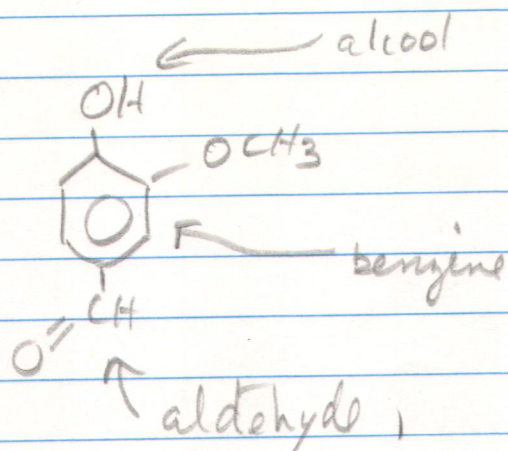 alcool
OH
OCH3
benzine
CH
O
aldehyde,